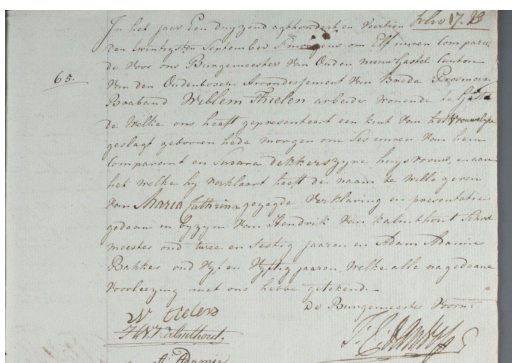 In het jaar Een duyzend agthonderd en veertien
folio 17. 33
den twintigsten September Smorgens om Elf uuren Compareerde
65.
de voor ons Burgemeester van Ouden Canton
van den Oudenbosch Arrondissement van Breda Provincie
Braband Willem Thielen arbeider wonende te
de welke ons heeft gepresenteert een kint van het vrouwelyke
geslagt gebooren hede morgen om Ses uuren van hem
Comparant en Susanna dekkers zyne huysvrouw, en aan
het welke hy verklaart heeft de naam te wille geven
van Maria Cathrina gezegde verklaring en presentatie
gedaan in byzyn van Hendrik van Kalmthout
meester oud twee en sestig jaaren en Adam Adamie
Bakker oud vyf en vyftig jaaren welke alle nagedaane
voorlezing met ons hebbe getekend.
De Burgemeester voorn:
W Tielen
H V Kalmthout.
A. Adamie